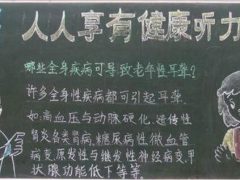 人人享有健康听力
哪些全身疾病可导致老年性耳聋?
许多全身性疾病都可引起耳聋.
如:高血压与动脉硬化,遗传性
肾炎各类肾病,糖尿病性微血管
病变,原发性与继发性神经病变,甲
状腺功能低下等等.